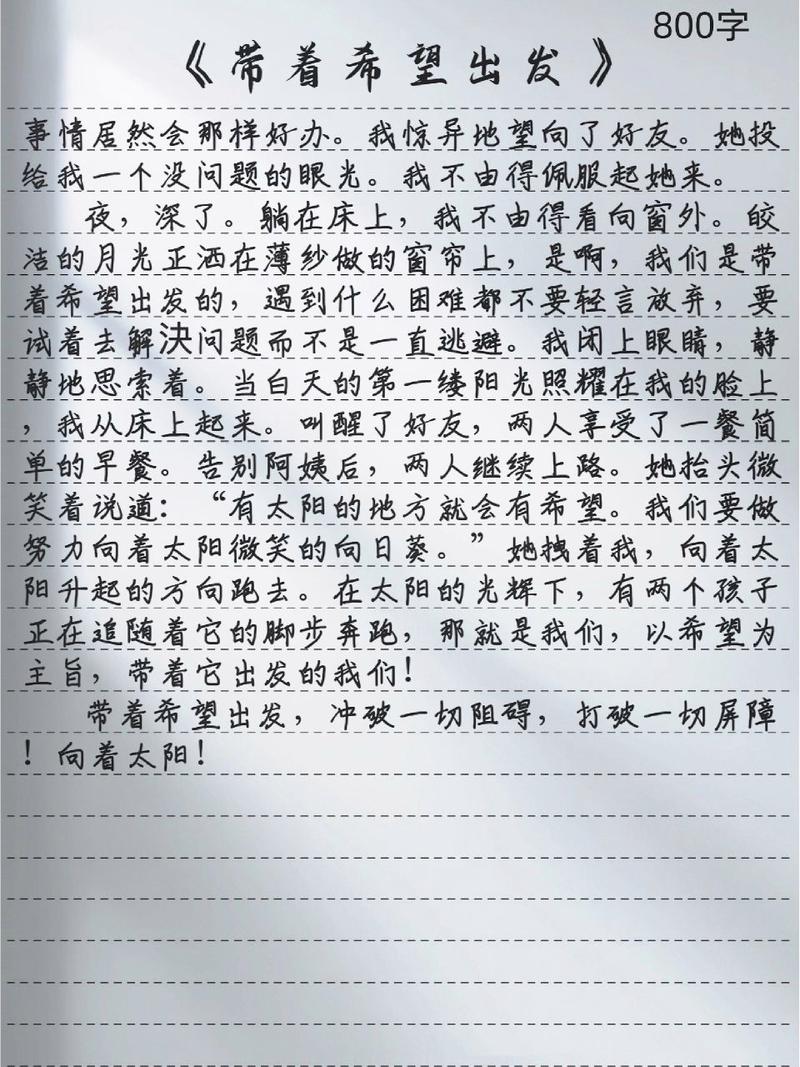 800字
《带着希望出发》
事情居然会那样好办。我惊异地望向了好友。她投
给我一个没问题的眼光。我不由得佩服起她来。
夜，深了。躺在床上，我不由得看向窗外。皎
洁的月光正洒在薄纱做的窗帘上，是啊，我们是带
着希望出发的，遇到什么困难都不要轻言放弃，要
试着去解決问题而不是一直逃避。我闭上眼睛，静
静地思索着。当白天的第一缕阳光照耀在我的脸上
，我从床上起来。叫醒了好友，两人享受了一餐简
单的早餐。告别阿姨后，两人继续上路。她抬头微
笑着说道：“有太阳的地方就会有希望。我们要做
努力向着太阳微笑的向日葵。”她拽着我，向着太
阳升起的方向跑去。在太阳的光辉下，有两个孩子
正在追随着它的脚步奔跑，那就是我们，以希望为
主旨，带着它出发的我们！
带着希望出发，冲破一切阻碍，打破一切屏障
！向着太阳！